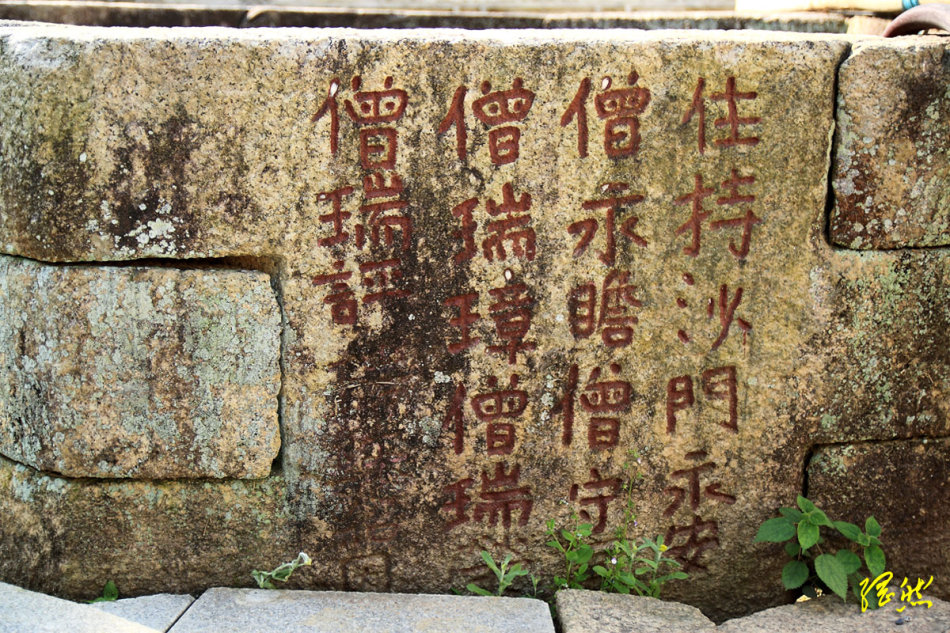 住持沙門永安
僧永瞻僧守
僧瑞璋僧瑞
僧瑞評